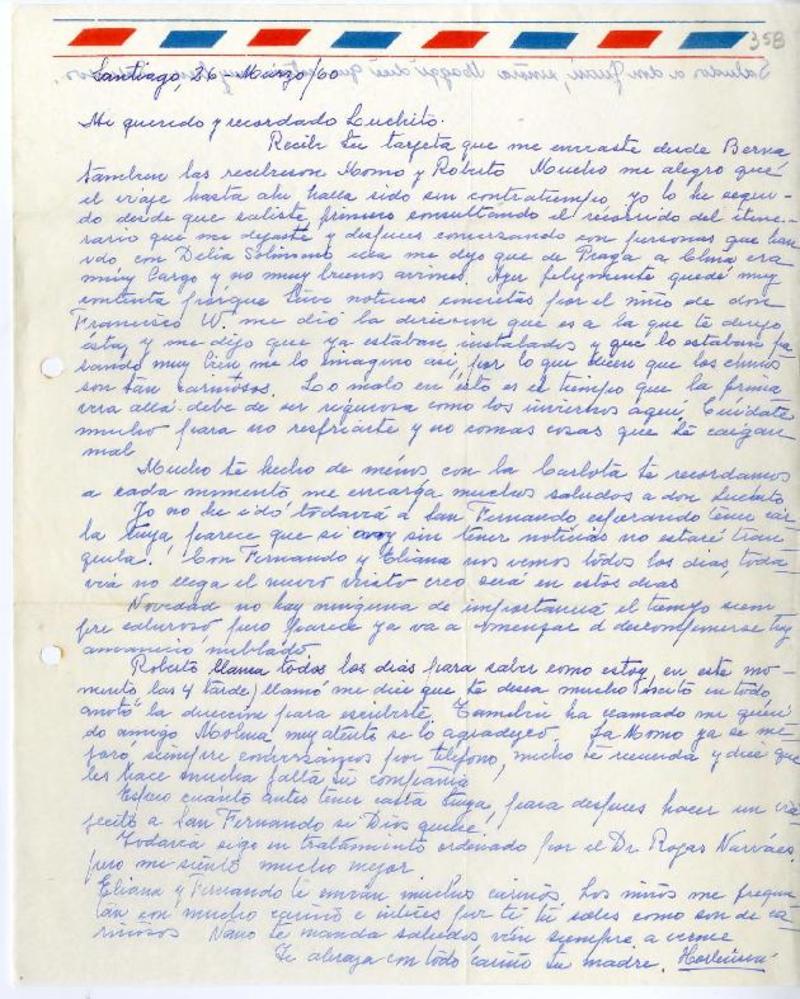 358
Santiago, 26 Marzo/60
Mi querido y recordado Luchito.
Recibí tu tarjeta que me enviaste desde Berna
tambien las recibieron Momo y Roberto Mucho me alegro que
el viaje hasta ahi halla sido sin contratiempo, yo lo he segui-
do desde que saliste, primero consultando el recorrido del itine-
rario que me dejaste y despues conversando con personas que han
ido con Delia me dijo que de Praga a China era
muy largo y no muy buenos aviones. Ayer felizmente quedé muy
contenta porque tuve noticias concretas por el niño de don
Francisco W. me dió la direccion que es a la que te dirijo
ésta, y me dijo que ya estaban instalados y que lo estaban pa
sando muy bien me lo imagino asi, por lo que dicen que los chinos
son tan cariñosos. Lo malo en ésto es el tiempo que la prima
vera allá debe de ser rigurosa como los inviernos aquí, Cuidate
mucho para no resfriarte y no comas cosas que te caigan
mal
Mucho te hecho de menos con la Carlota te recordamos
a cada momento me encarga muchos saludos a don Luchito
Yo no he ido todavía a San Fernando, esperando tener car
ta tuya, parece que si voy sin tener noticias no estaré tran
quila. Con Fernando y Eliana nos vemos todos los dias, toda
via no llega el nuevo creo será en estos dias
Novedad no hay ninguna de importancia el tiempo siem
pre caluroso, pero parece ya va a comenzar a descomponerse hoy
amaneció nublado
Roberto llama todos los dias para saber como estoy, en este mo-
mento las 4 tarde) llamó me dice que te desea mucho éxito en todo,
anotó la direccion para escribirte. Tambien ha llamado mi queri
do amigo Molina muy atento se lo agradezco. La Momo ya se me
joró, siempre conversamos por teléfono, mucho te recuerda y dice que
les hace mucha falta tu compañia
Espero cuanto antes tener carta tuya, para despues hacer un via
jecito a San Fernando si Dios quiere
Todavía sigo en tratamiento ordenado por el Dr. Rojas Narváes,
pero me siento mucho mejor
Eliana y Fernando te envian muchos cariños. Los niños me pregun
tan con mucho cariño e interes por ti tú sabes como son de ca
riñosos Nano te manda saludos vien siempre a verme
Te abraza con todo cariño tu madre.